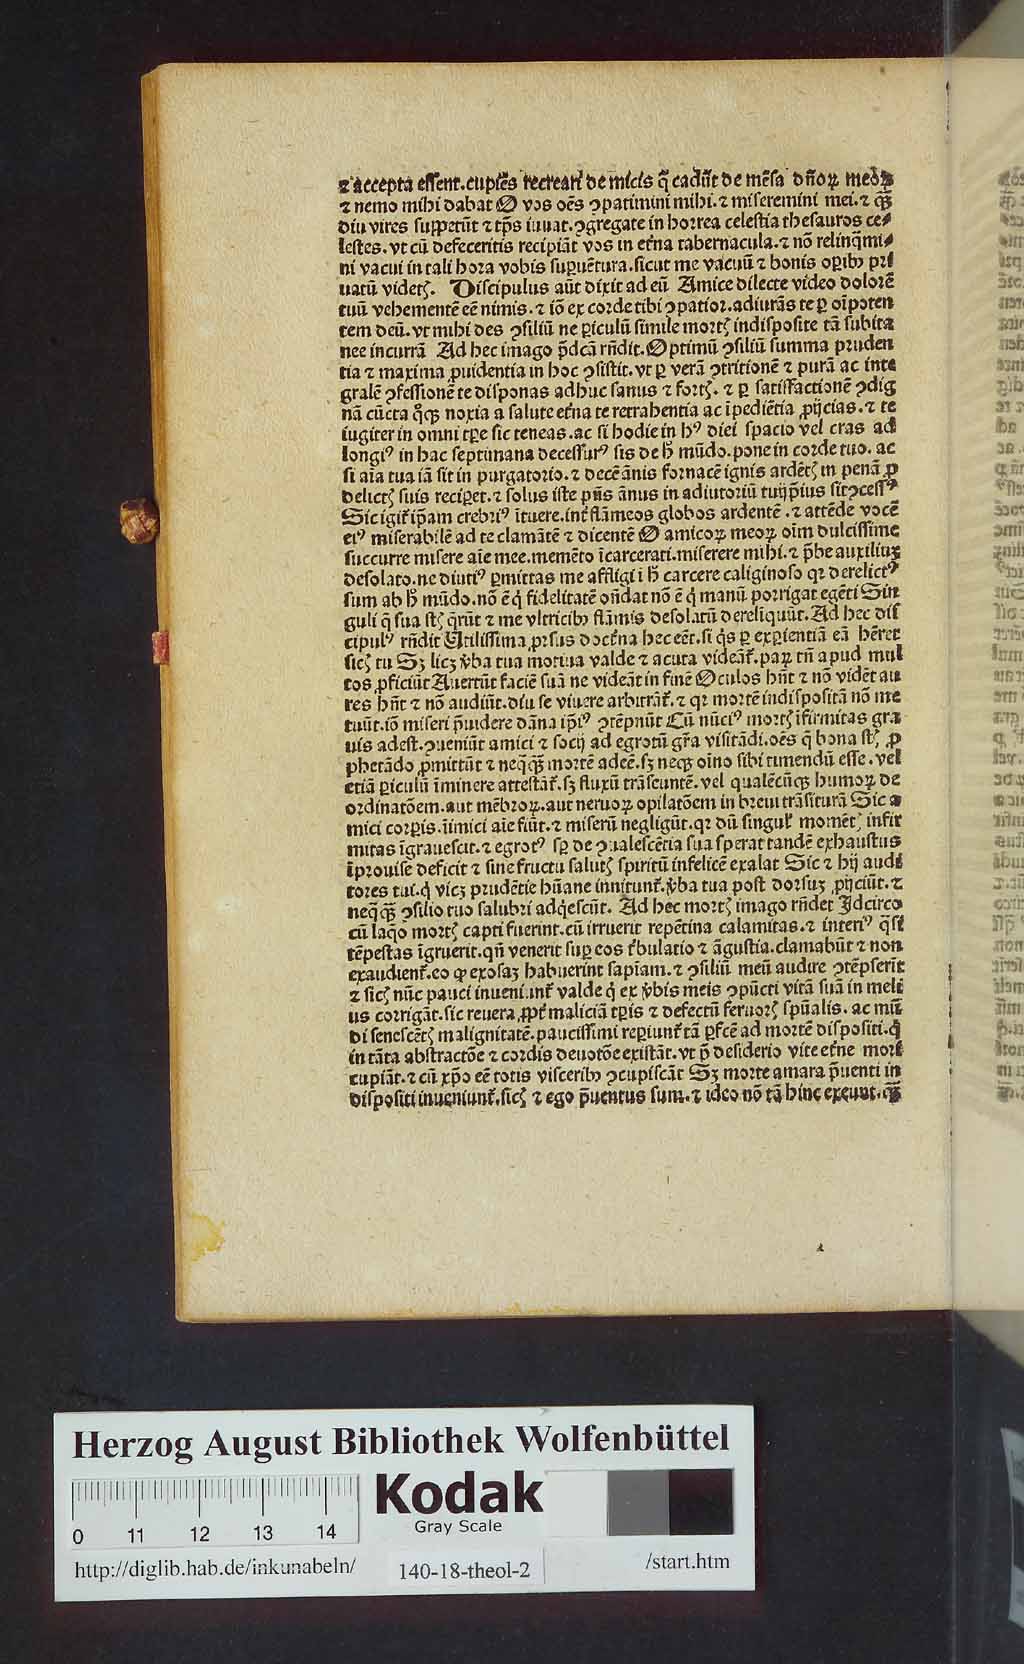 ⁊ accepta essent.cupiẽs recreari de micis q̃ cadũt de mẽsa dñoꝝ meoꝝ
⁊ nemo mihi dabat O vos oẽs ꝯpatimini mihi.⁊ miseremini mei.⁊ qꝫ
diu vires suppetũt ⁊ tp̃s iuuat.ꝯgregate in horrea celestia thesauros ce⸗
lestes.vt cũ defeceritis recipiãt vos in et̃na tabernacula.⁊ nõ relinq̃mi⸗
ni vacui in tali hora vobis suꝑuẽtura.sicut me vacuũ ⁊ bonis oꝑibꝰ pri
uatũ videtꝭ. Discipulus aũt dixit ad eũ Amice dilecte video dolorẽ
tuũ vehementẽ eẽ nimis.⁊ iõ ex corde tibi ꝯpatior.adiurãs te ꝑ oĩpoten
tem deũ.vt mihi des ꝯsiliũ ne ꝑiculũ simile mortꝭ indisposite tã subita
nee incurrã Ad hec imago p̃dcã rñdit.Optimũ ꝯsiliũ summa pruden
tia ⁊ maxima ꝓuidentia in hoc ꝯsistit.vt ꝑ verã ꝯtritionẽ ⁊ purã ac inte
gralẽ ꝯfessionẽ te disponas adhuc sanus ⁊ fortꝭ.⁊ ꝑ satisfactionẽ ꝯdig
nã cũcta q̃qꝫ noxia a salute et̃na te retrahentia ac ĩpediẽtia ꝓijcias.⁊ te
iugiter in omni tp̃e sic teneas.ac si hodie in hꝰ diei spacio vel cras ad
longiꝰ in hac septimana decessurꝰ sis de h̃ mũdo.pone in corde tuo.ac
si aĩa tua iã sit in purgatorio.⁊ decẽ ãnis fornacẽ ignis ardẽtꝭ in penã ꝓ
delictꝭ suis reciꝑet.⁊ solus iste pñs ãnus in adiutoriũ tuijp̃ius sit ꝯcessꝰ
Sic igit̃ ip̃am crebriꝰ ĩtuere.int̃ flãmeos globos ardentẽ.⁊ attẽde vocẽ
eiꝰ miserabilẽ ad te clamãtẽ ⁊ dicentẽ O amicoꝝ meoꝝ oĩm dulcissime
succurre misere aĩe mee.memẽto ĩcarcerati.miserere mihi.⁊ p̃be auxiliuꝫ
desolato.ne diutiꝰ ꝑmittas me affligi ĩ h̃ carcere caliginoso qꝛ derelictꝰ
sum ab h̃ mũdo.nõ ẽ q̃ fidelitatẽ oñdat nõ ẽ q̃ manũ porrigat egẽti Sin
guli q̃ sua stꝭ q̃rũt ⁊ me vltricibꝰ flãmis desolatũ derelĩquũt.Ad hec dis
cipulꝰ rñdit Utilissima ꝓrsus doct̃na hec eẽt.si q̃s ꝑ exꝑientiã eã hẽret
sicꝭ tu Sꝫ licꝫ v̾ba tua motiua valde ⁊ acuta videãt̃.paꝝ tñ apud mul
tos ꝓficiũt Auertũt faciẽ suã ne videãt in finẽ Oculos hñt ⁊ nõ vidẽt au
res hñt ⁊ nõ audiũt.diu se viuere arbitrãt̃.⁊ qꝛ mortẽ indispositã nõ me
tuũt.iõ miseri p̃uidere dãna ip̃iꝰ ꝯtẽpnũt Cũ nũciꝰ mortꝭ ĩfirmitas gra
uis adest.ꝯueniũt amici ⁊ socij ad egrotũ gr̃a visitãdi.oẽs q̃ bona stꝭ ꝓ
phetãdo ꝓmittũt ⁊ neq̃qꝫ mortẽ adeẽ.sꝫ neqꝫ oĩno sibi timendũ esse.vel
etiã ꝑiculũ ĩminere attestãt̃.sꝫ fluxũ trãseuntẽ.vel qualẽcũqꝫ humoꝝ de
ordinatõem.aut mẽbroꝝ.aut neruoꝝ opilatõem in breui trãsiturã Sic a
mici corꝑis.ĩimici aĩe fiũt.⁊ miserũ negligũt.qꝛ dũ singul̃ momẽtꝭ infir
mitas ĩgrauescit.⁊ egrotꝰ sꝑ de ꝯualescẽtia sua sperat tandẽ exhaustus
ĩprouise deficit ⁊ sine fructu salutꝭ spiritũ infelicẽ exalat Sic ⁊ hij audi
tores tui.q̃ vicꝫ prudẽtie hũane innitunt̃.v̾ba tua post dorsuꝫ ꝓijciũt.⁊
neq̃qꝫ ꝯsilio tuo salubri adq̃escũt. Ad hec mortꝭ imago rñdet Jdcirco
cũ laq̃o mortꝭ capti fuerint.cũ irruerit repẽtina calamitas.⁊ interiꝰ q̃si
tẽpestas ĩgruerit.qñ venerit suꝑ eos t̾bulatio ⁊ ãgustia.clamabũt ⁊ non
exaudient̃.eo ꝙ exosaꝫ habuerint sapĩam.⁊ ꝯsiliũ meũ audire ꝯtẽpserĩt
⁊ sicꝭ nũc pauci inueniunt̃ valde q̃ ex v̾bis meis ꝯpũcti vitã suã in meli
us corrigãt.sic reuera ꝓpt̃ maliciã tp̃is ⁊ defectũ feruorꝭ spũalis.ac mũ
di senescẽtꝭ malignitatẽ.paucissimi reꝑiunt̃ tã ꝑfcẽ ad mortẽ dispositi.q̃
in tãta abstractõe ⁊ cordis deuotõe existãt.vt p̃ desiderio vite et̃ne mori
cupiãt.⁊ cũ xp̃o eẽ totis visceribꝰ ꝯcupiscãt Sꝫ morte amara p̃uenti in
dispositi inueniunt̃.sicꝭ ⁊ ego p̃uentus sum.⁊ ideo nõ tã hinc exeunt.qꝫ
Herzog August Bibliothek Wolfenbüttel
Kodak
Gray Scale
0 11 12 13 14
http://diglib.hab.de/inkunabeln/ 140-18-theol-2 /start.htm